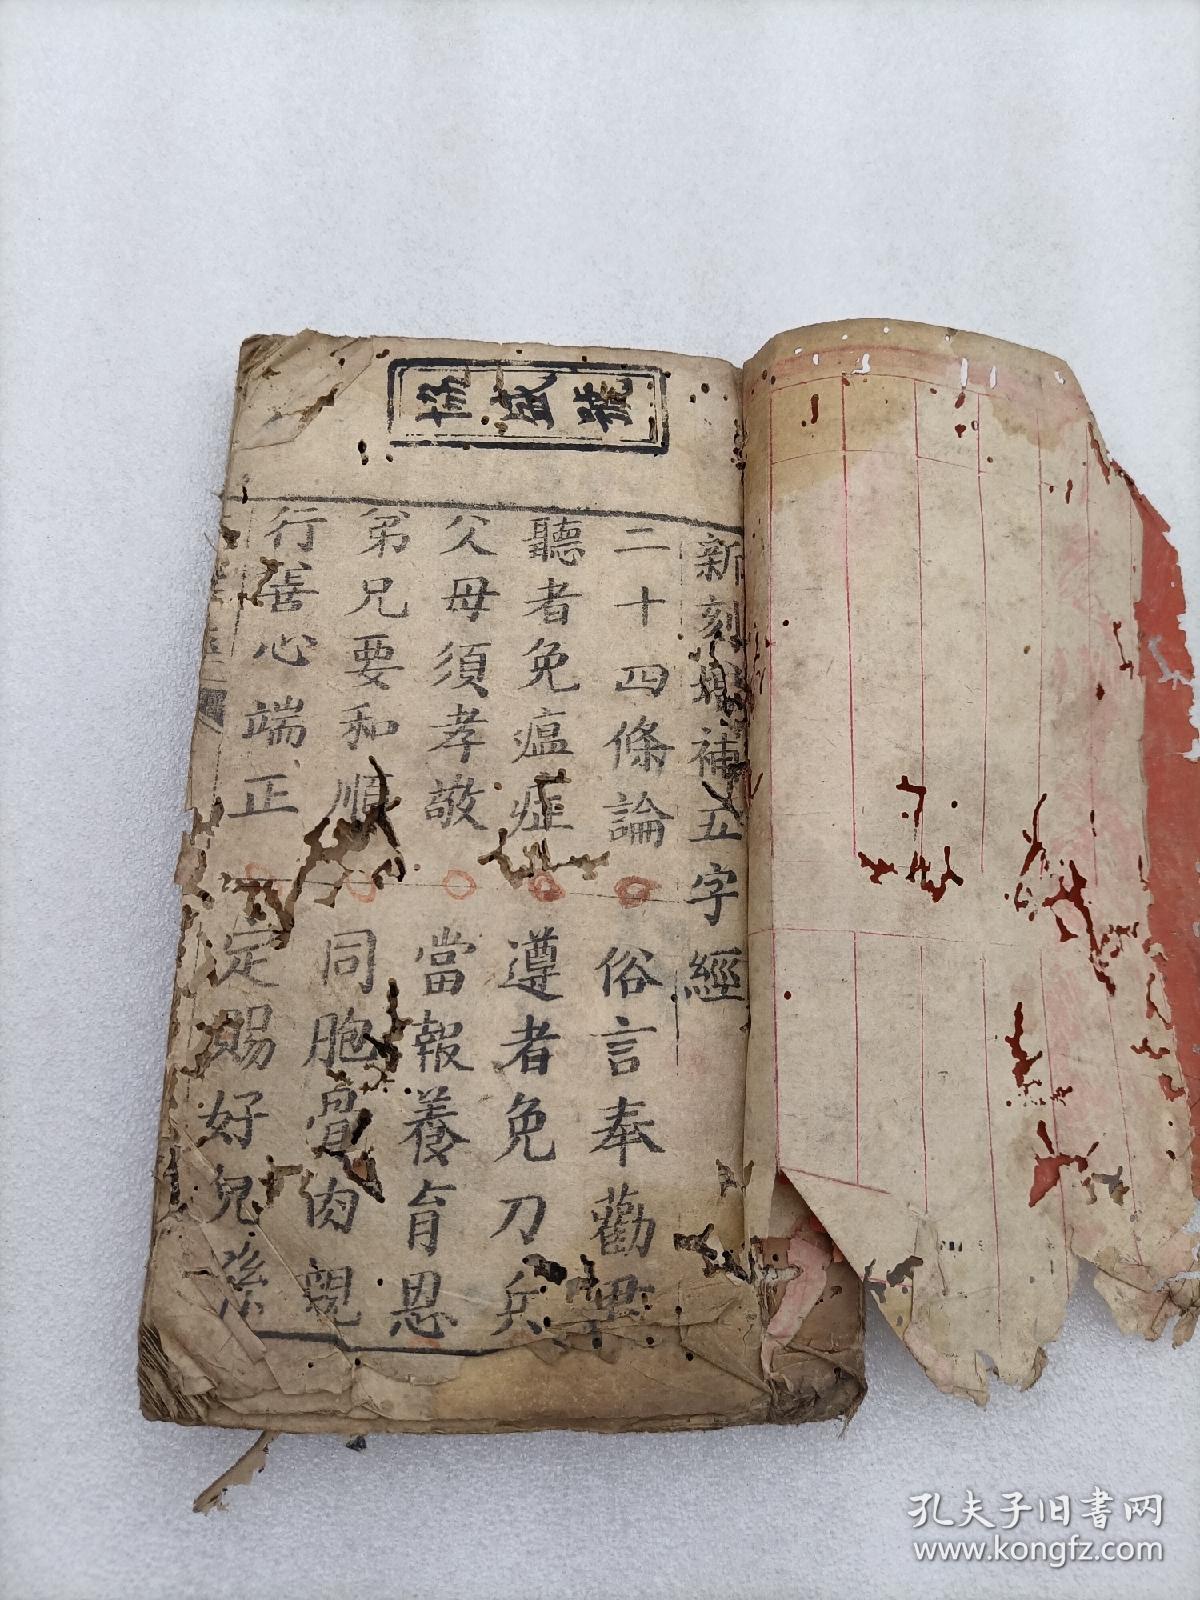 盛號
新刻補五字經
二十四條論 俗言奉勸
聽者免瘟症 遵者免刀兵
父母須孝敬 當報養育恩
弟兄要和順 同胞骨肉親
行善心端正 定賜好兒孫
孔夫子旧书网
www.kongfz.com